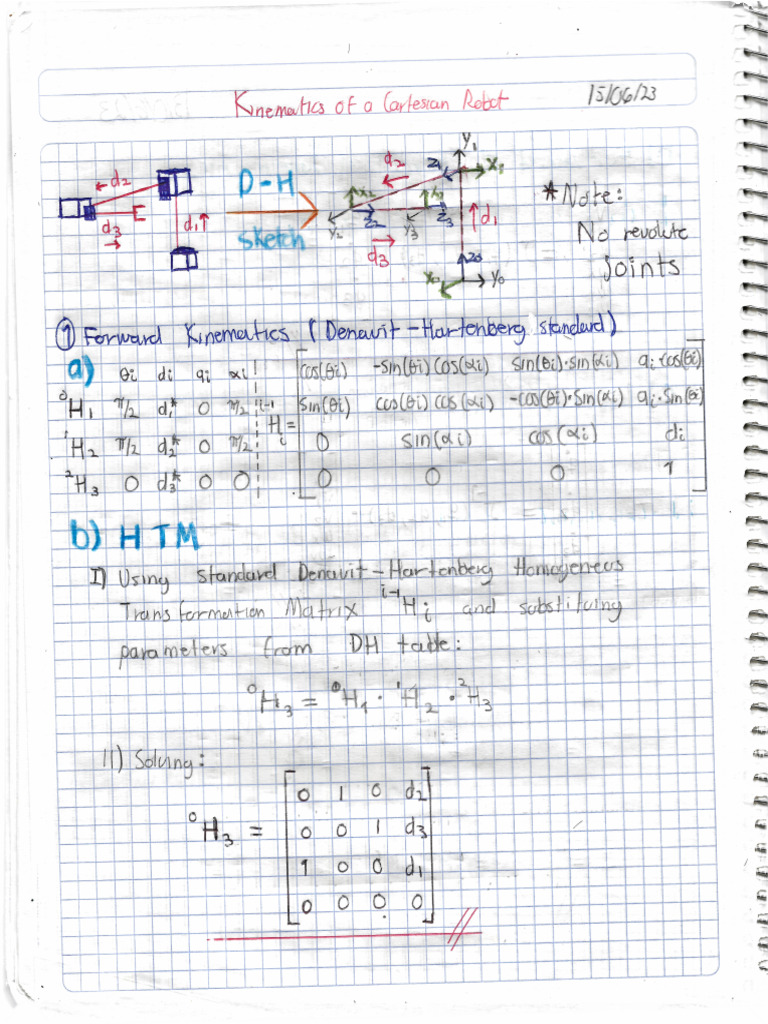 Kinematics of a Cartesian Robot 15/06/23
d2 d3 d1
D-H
sketch
d2 z1 y1 x1
x2 y2 z2 y3 z3 d1
d3 z0 x0 y0
* Note:
No revolute
joints
① Forward Kinematics (Denavit-Hartenberg standard)
a) θi di ai αi
⁰H₁ π/2 d₁* 0 π/2
¹H₂ π/2 d₂* 0 π/2
²H₃ 0 d₃* 0 0
ⁱ⁻¹Hᵢ =
cos(θi) -sin(θi)cos(αi) sin(θi)·sin(αi) ai·cos(θi)
sin(θi) cos(θi)cos(αi) -cos(θi)·sin(αi) ai·sin(θi)
0 sin(αi) cos(αi) di
0 0 0 1
b) HTM
I) Using standard Denavit-Hartenberg Homogeneus
Transformation Matrix ⁱ⁻¹Hᵢ and substituing
parameters from DH table:
⁰H₃ = ⁰H₁ · ¹H₂ · ²H₃
II) Solving:
⁰H₃ =
0 1 0 d2
0 0 1 d3
1 0 0 d1
0 0 0 0